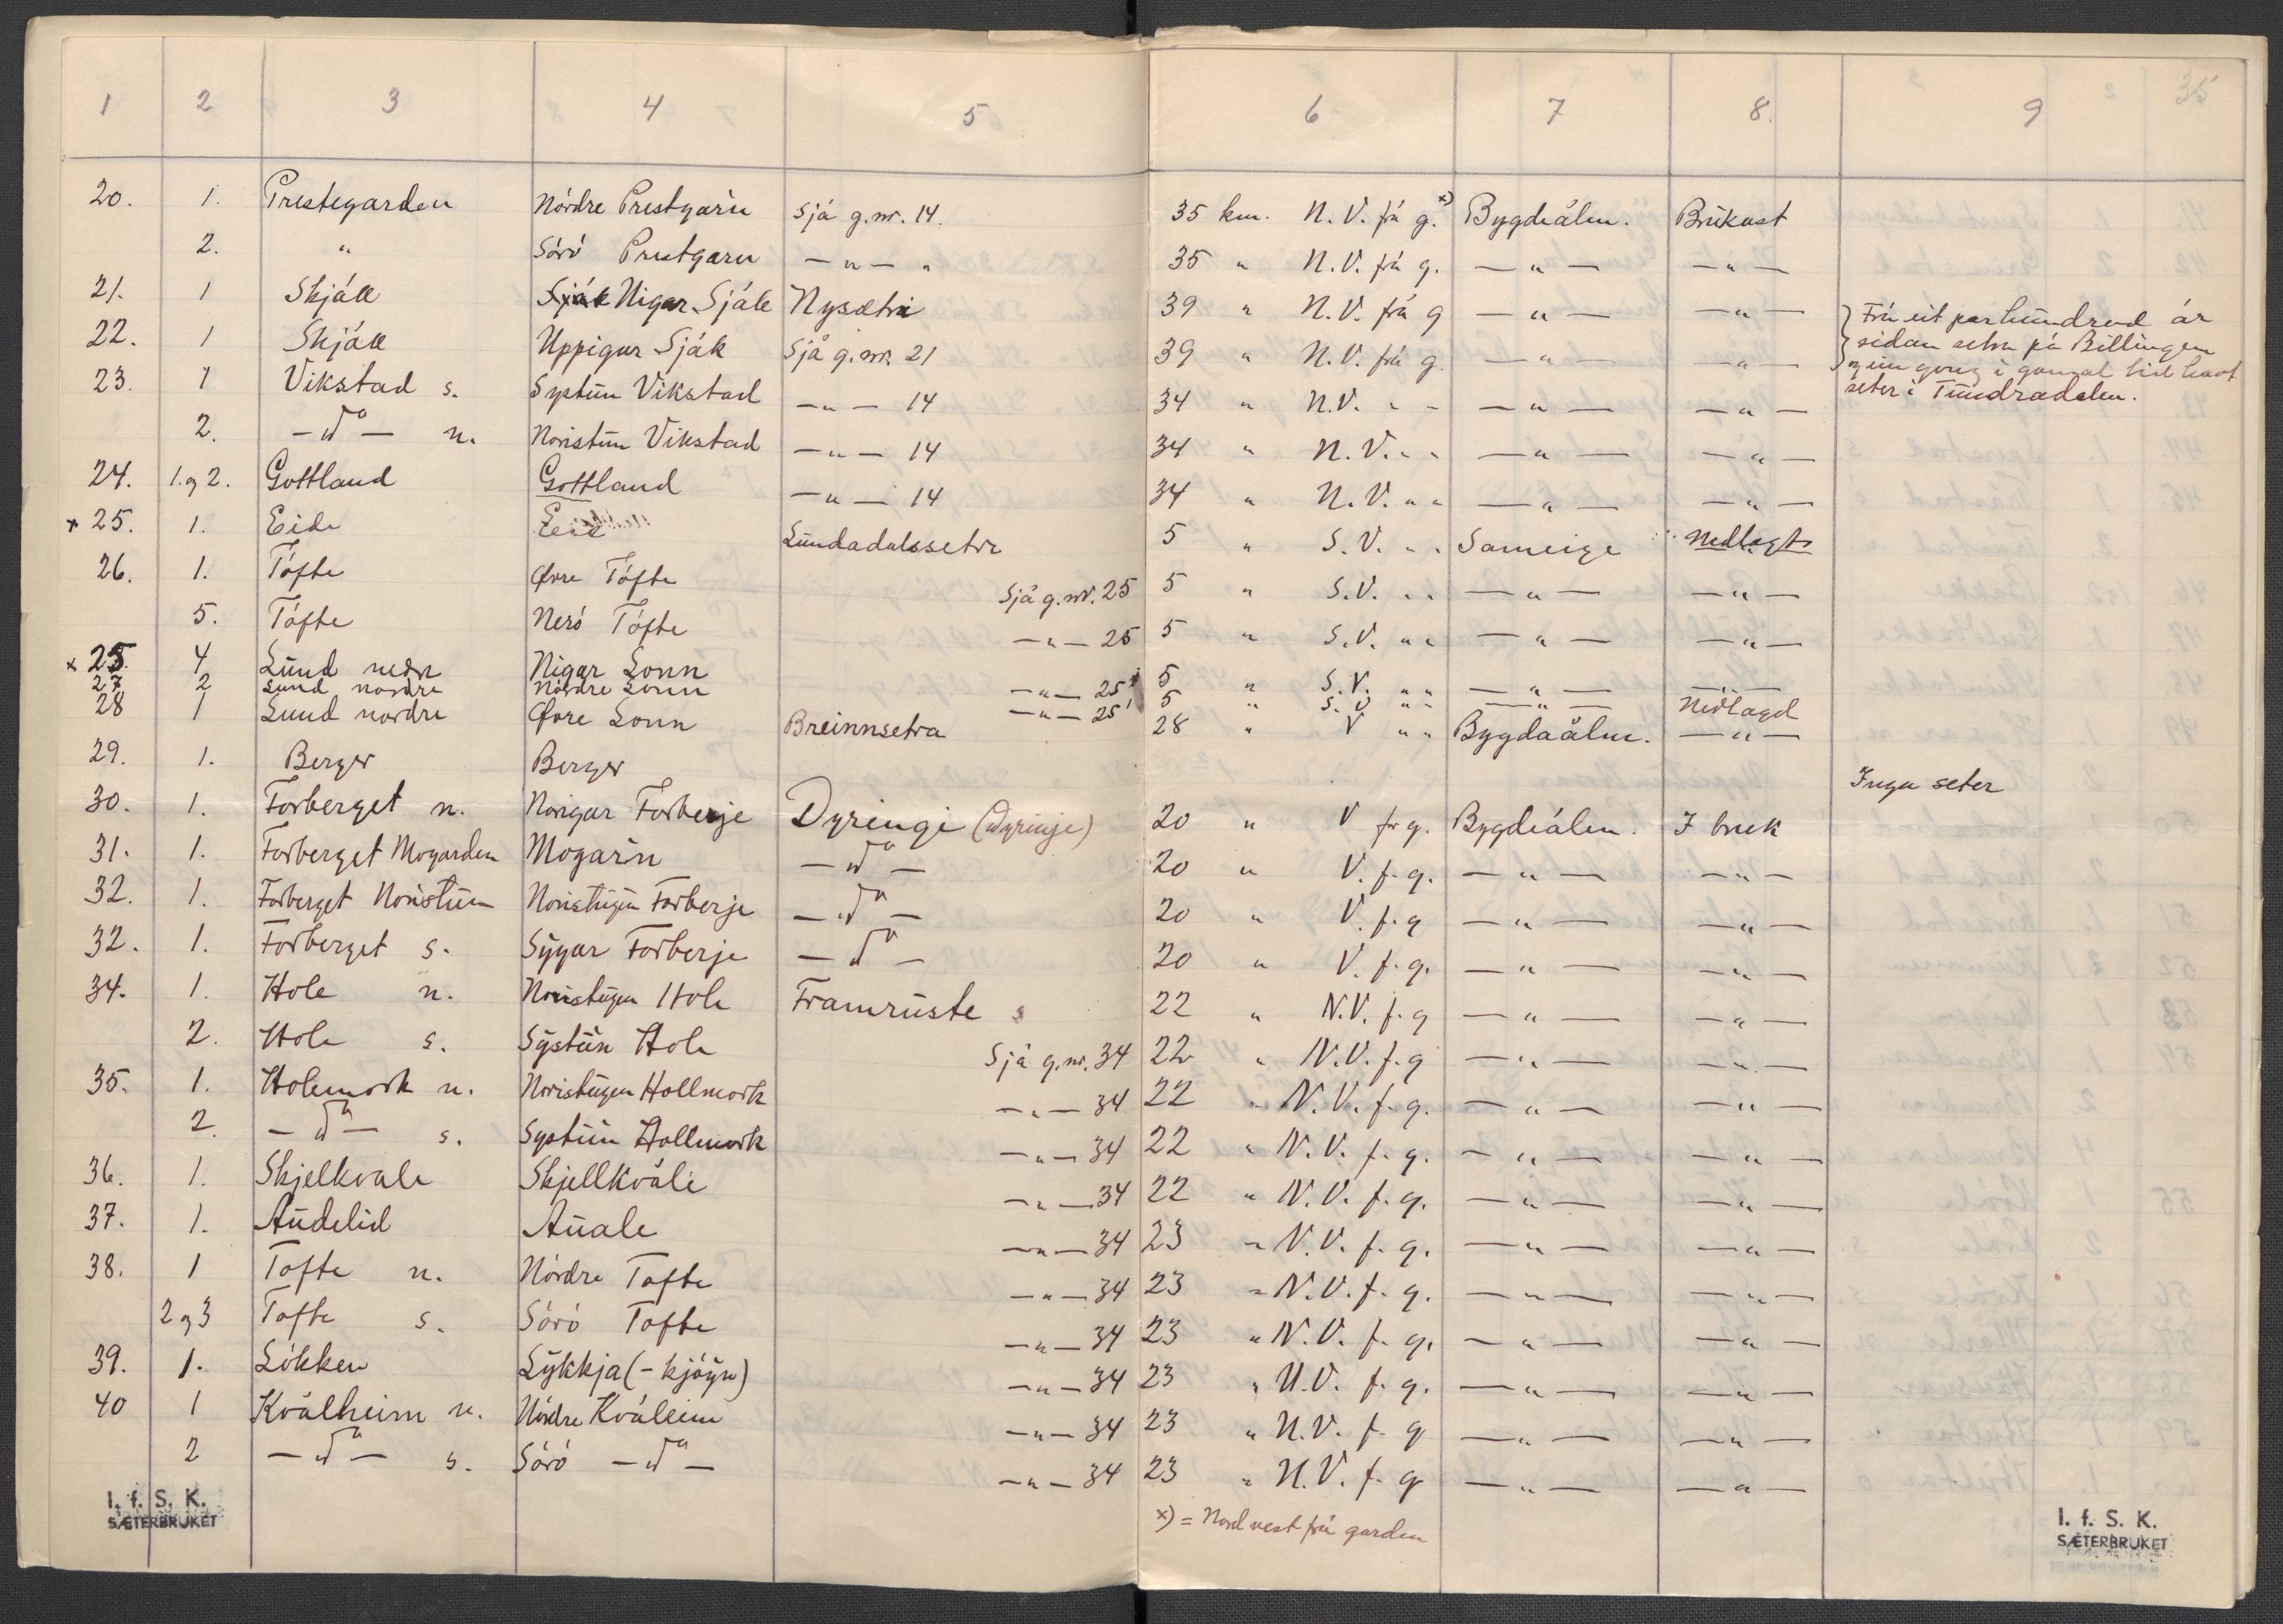 35
1 2 3 4 5 6 7 8. 9
20. 1. Prestegarden Nórdre Prestgarn Sjá g.nr. 14. 35 km. N.V. frá g. x) Bygdeálm. Brúkast
2. " Sóró Prestgarn — " — " 35 " N.V. frá g. — " — — " —
21. 1 Skjåk Sjåk Nigar Sjåk Nysætri 39 " N.V. frá g — " — — " — Frá eit parhundrad år
22. 1 Skjåk Uppigur Sjåk Sjå g.nr. 21 39 " N.V. frá g. — " — — " — sidan setra på Billingen
23. 1 Vikstad s. Systun Vikstad — " — 14 34 " N.V. " " — " — — " — og ein gong i gamal tid havt
seter i Tundradalen.
2. — dº — n. Noristun Vikstad — " — 14 34 " N.V. " " — " — — " —
24. 1. og 2. Gottland Gottland — " — 14 34 " N.V. " " — " — — " —
x 25. 1. Eide Eie Lundadalssetre 5 " S.V. " " Sameige Nedlagt
26. 1. Tófte Øvre Tófte Sjå g.nr. 25 5 " S.V. " " — " — — " —
5. Tófte Neró Tófte — " — 25 5 " S.V. " " — " — — " —
x 25. 4 Lund nedre Nigar Lonn — " — 25 5 " S.V. " " — " — — " —
27 2 Lund nordre Nórdre Lonn — " — 25 5 " S.V. " " — " — Nedlagd
28 1 Lund nordre Øvre Lonn Breinnsetra 28 " V " " Bygdaålm. — " —
29. 1. Berger Berger Inga seter
30. 1. Forberget n. Norigar Forberje Dyringi (Dyrinje) 20 " V fr g. Bygdeálm. I bruk
31. 1. Forberget Mogarden Mogarin — dº — 20 " V. f. g. — " — — " —
32. 1. Forberget Noristun Noristugun Forberje — dº — 20 " V. f. g — " — — " —
32. 1. Forberget s. Sygar Forberje — dº — 20 " V. f. g. — " — — " —
34. 1. Hole n. Noristugun Hole Framruste s 22 " N.V. f. g — " — — " —
2. Hole s. Systun Hole Sjå g.nr. 34 22 " N.V. f. g — " — — " —
35. 1. Holemork n. Noristugun Hollmork — " — 34 22 " N.V. f. g. — " — — " —
2. — dº — s. Systun Hollmork — " — 34 22 " N.V. f. g. — " — — " —
36. 1. Skjelkvale Skjellkvåle — " — 34 22 " N.V. f. g. — " — — " —
37. 1. Audelid Auale — " — 34 23 " N.V. f. g. — " — — " —
38. 1 Tofte n. Nórdre Tofte — " — 34 23 " N.V. f. g. — " — — " —
2 og 3 Tofte s. Sóró Tofte — " — 34 23 " N.V. f. g. — " — — " —
39. 1. Lókken Lykkja (- kjóyn) — " — 34 23 " N.V. f. g. — " — — " —
40 1 Kvålheim n. Nórdre Kvåleim — " — 34 23 " N.V. f. g — " — — " —
2 — dº — s. Sóró — dº — — " — 34 23 " N.V. f. g — " — — " —
x) = Nordvest frå garden
I. f. S. K.
SÆTERBRUKET
I. f. S. K.
SÆTERBRUKET